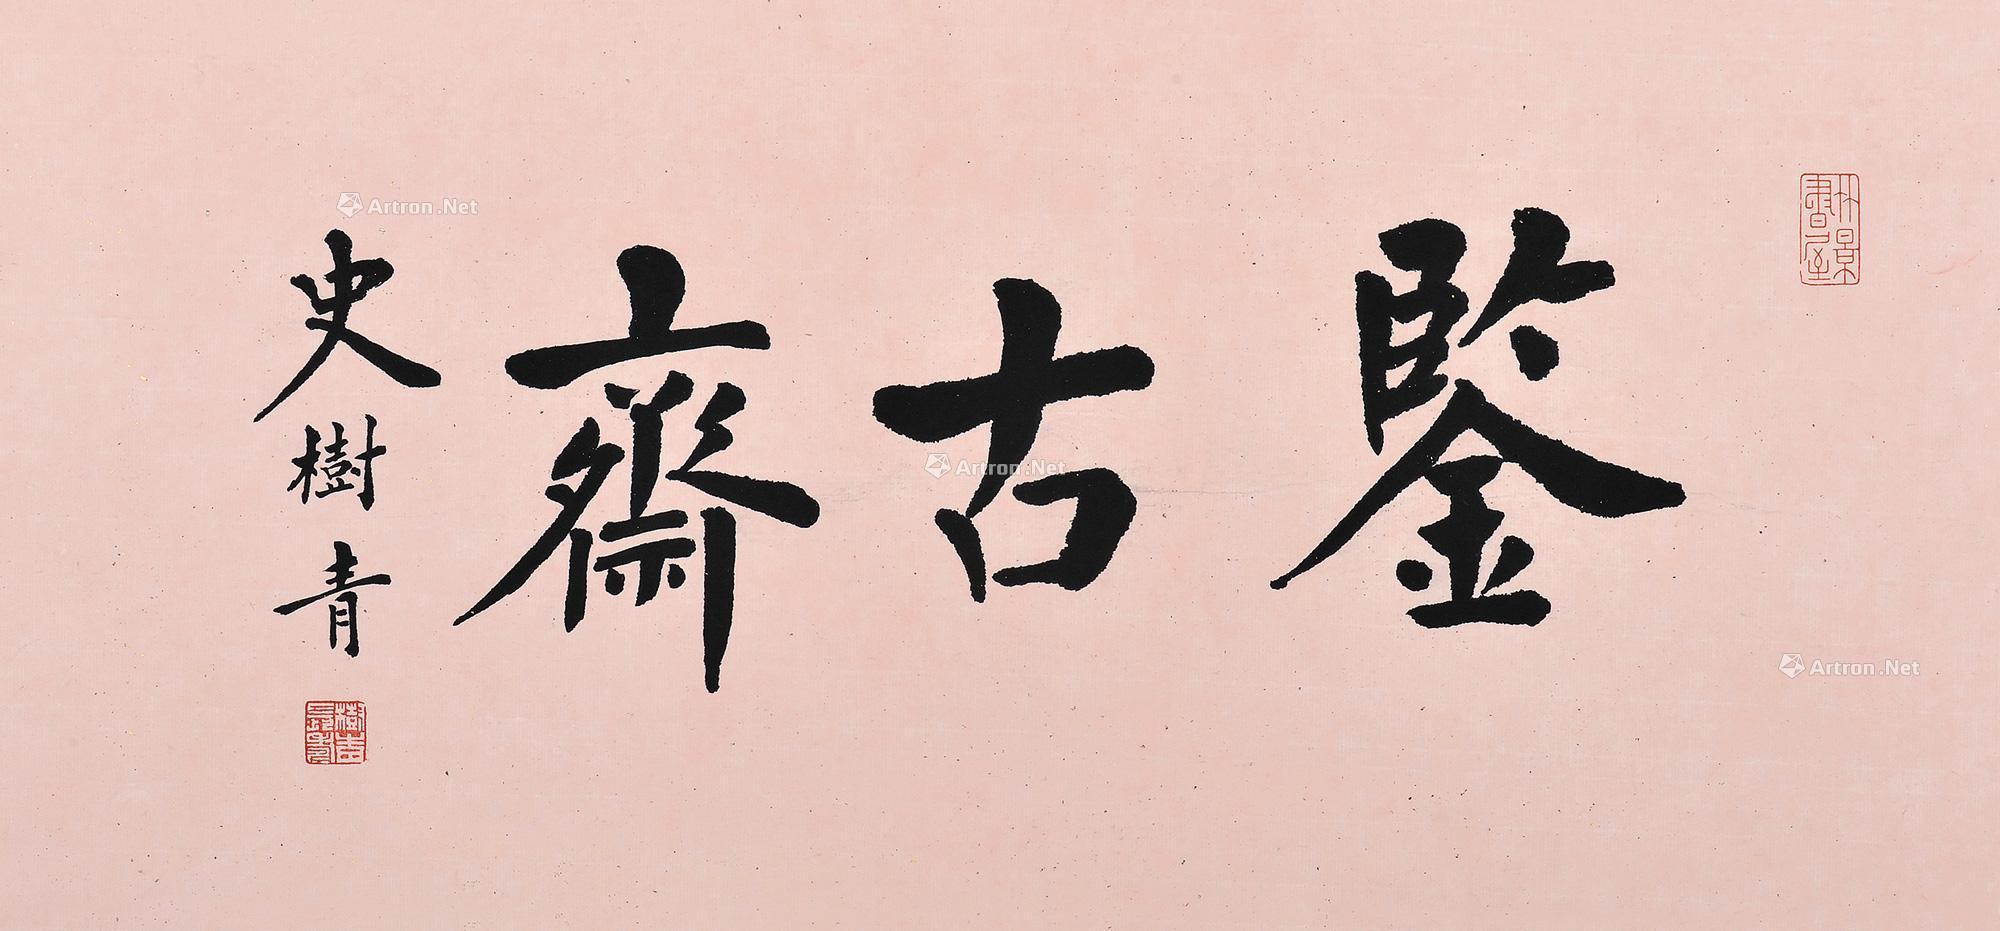 鑒古齋
史樹青
竹影書屋
樹青長壽
Artron.Net
Artron.Net
Artron.Net